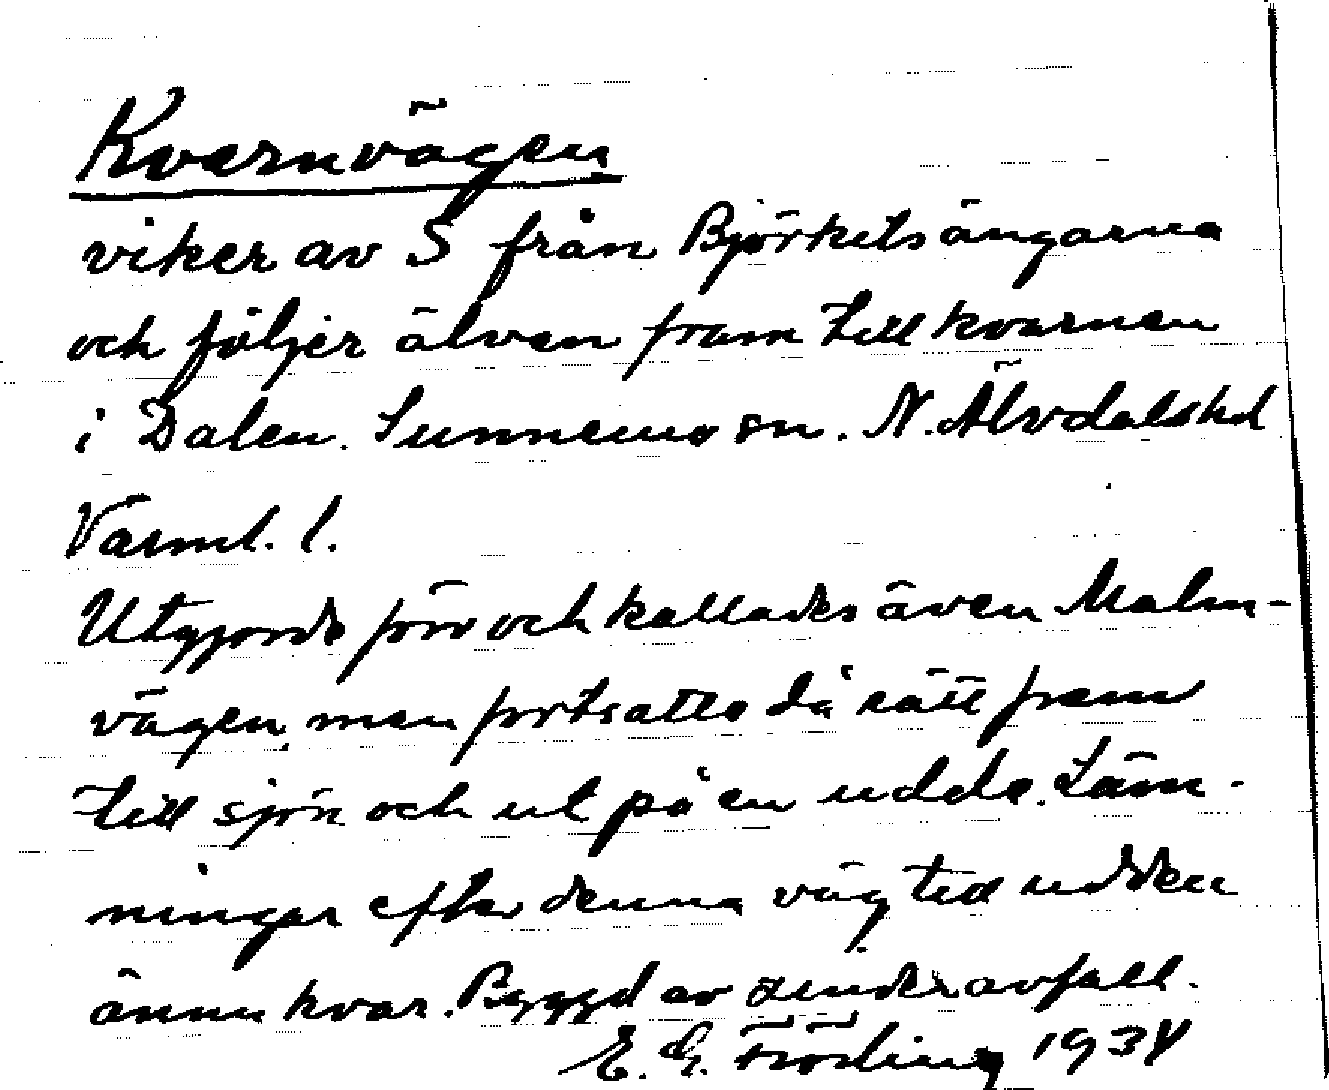 Kvarnvägen
viker av S från Björkilsängarna
och följer älven fram till kvarnen
i Dalen. Sunnemo sn. N. Älvdals hd
Värml. l.
Utgjorde förr och kallades även Malm-
vägen, men fortsatte då rätt fram
till sjön och ut på en udde. Läm-
ningar efter denna väg till udden
ännu kvar. Byggd av avfall.
E. G. Fröding 1934